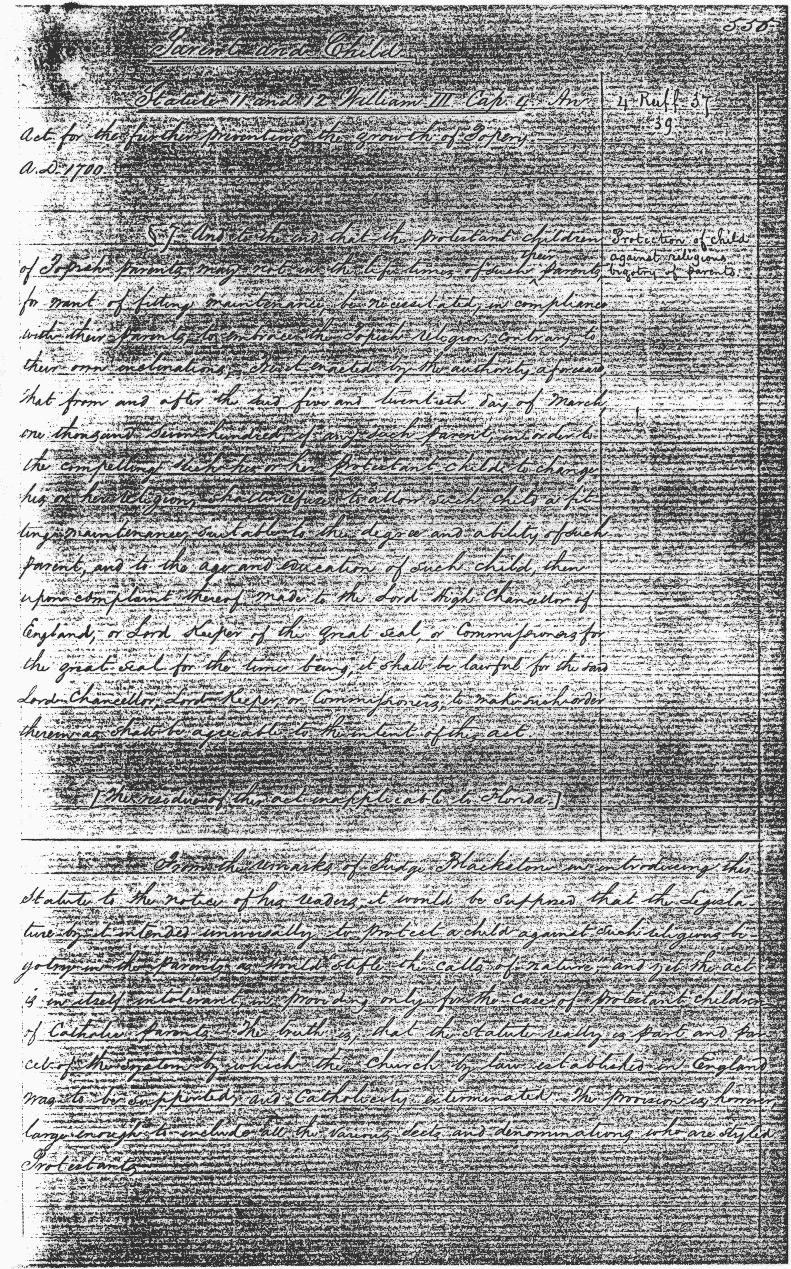 555
Parent and Child
Statute 11 and 12 William III Cap. 4. An
4 Ruff. 37
39.
Act for the further preventing the growth of Popery.
A.D. 1700
§ 7. And to the end that the protestant children
Protection of child
against religious
bigotry of parents.
of Popish parents, may not in the life times of such their parents,
for want of fitting maintenance, be necessitated, in compliance
with their parents, to embrace the Popish religion, contrary to
their own inclinations, Be it enacted by the authority aforesaid,
That from and after the said five and twentieth day of March,
one thousand seven hundred, if any such parent, in order to
the compelling such his or her Protestant child to change
his or her religion, shall refuse to allow such child a fit-
ting maintenance, suitable to the degree and ability of such
parent, and to the age and education of such child, then
upon complaint thereof made to the Lord High Chancellor of
England, or Lord Keeper of the great seal, or Commissioners for
the great seal for the time being, it shall be lawful for the said
Lord Chancellor, Lord Keeper or Commissioners, to make such order
therein as shall be agreeable to the intent of this act
[The residue of this act inapplicable to Florida.]
From the remarks of Judge Blackstone in introducing this
Statute to the notice of his readers, it would be supposed that the Legisla-
ture by it intended universally to protect a child against such religious bi-
gotry in the Parents as would stifle the calls of nature, and yet the act
is in itself intolerant in providing only for the case of Protestant children
of Catholic parents. The truth is, that the statute really is part and par-
cel of the system by which the Church by law established in England
was to be supported, and Catholicity exterminated. The provision is however
large enough to include all the various sects and denominations who are styled
Protestants